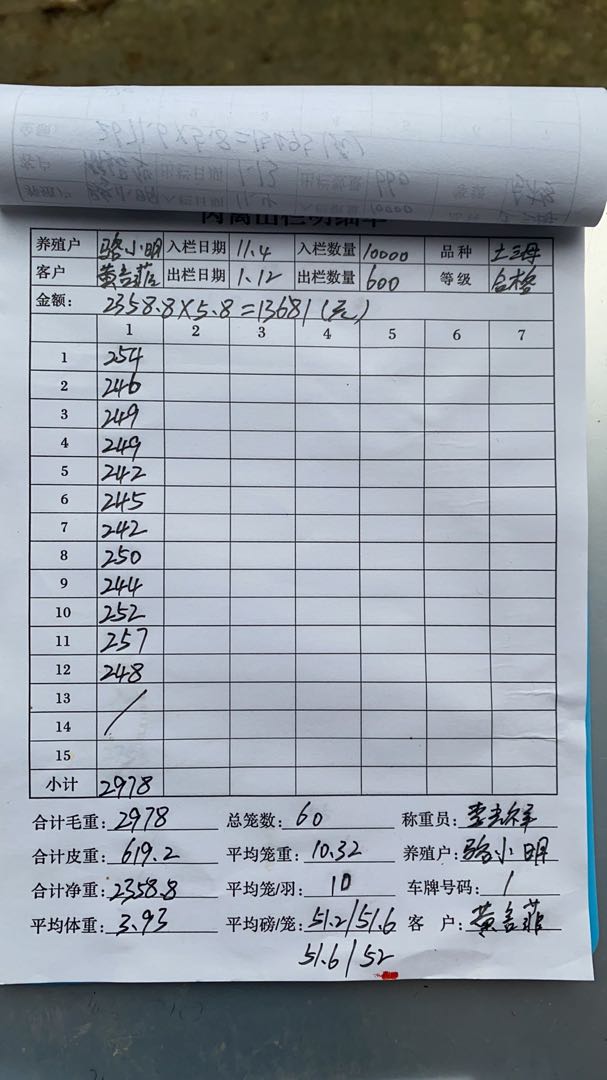 肉禽出栏明细单
养殖户 骆小明 入栏日期 11.4 入栏数量 10000 品种 土三母
客户 黄言菲 出栏日期 1.12 出栏数量 600 等级 合格
金额: 2358.8×5.8=13681(元)
1 2 3 4 5 6 7
1 254
2 246
3 249
4 249
5 242
6 245
7 242
8 250
9 244
10 252
11 257
12 248
13 /
14
15
小计 2978
合计毛重: 2978 总笼数: 60 称重员:
合计皮重: 619.2 平均笼重: 10.32 养殖户: 骆小明
合计净重: 2358.8 平均笼/羽: 10 车牌号码: /
平均体重: 3.93 平均磅/笼: 51.2/51.6 客 户: 黄言菲
51.6/52